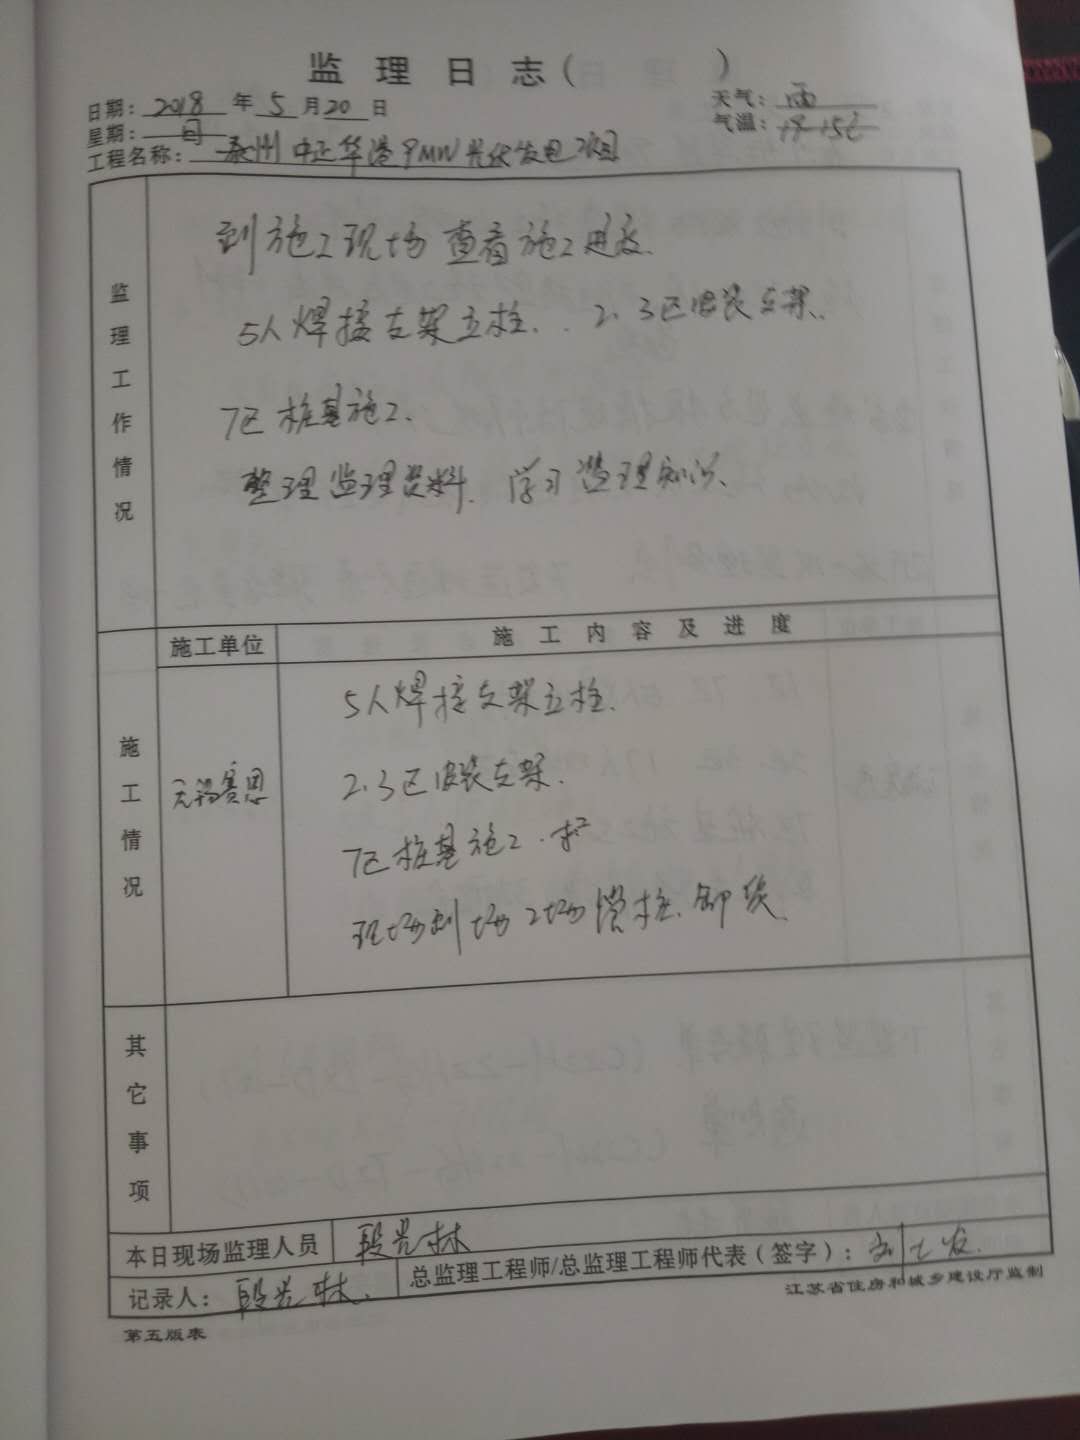 监理日志(　　　)
日期：2018年5月20日
天气：雨
星期：日
气温：+9 +15℃
工程名称：泰州中正华港9MW光伏发电项目
监理工作情况
到施工现场查看施工进度.
5人焊接支架立柱. . 2.3区安装支架.
7区桩基施工.
整理监理资料. 学习监理知识.
施工单位
施工内容及进度
施工情况
无锡赛思
5人焊接支架立柱.
2.3区安装支架.
7区桩基施工.
现场到 桩. 卸货
其它事项
本日现场监理人员 段光林
记录人：段光林. 总监理工程师/总监理工程师代表（签字）：
江苏省住房和城乡建设厅监制
第五版表